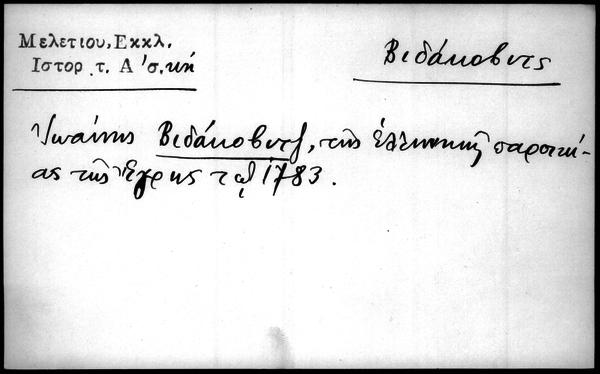 Μελετιου, Εκκλ.
Ιστορ. τ. Α΄ σ. κή
Βιδάκοβιτς
Ἰωάννης Βιδάκοβιτζ, τῆς ἑλληνικῆς παροικί-
ας τῆς Ἔγρης τῷ 1783.